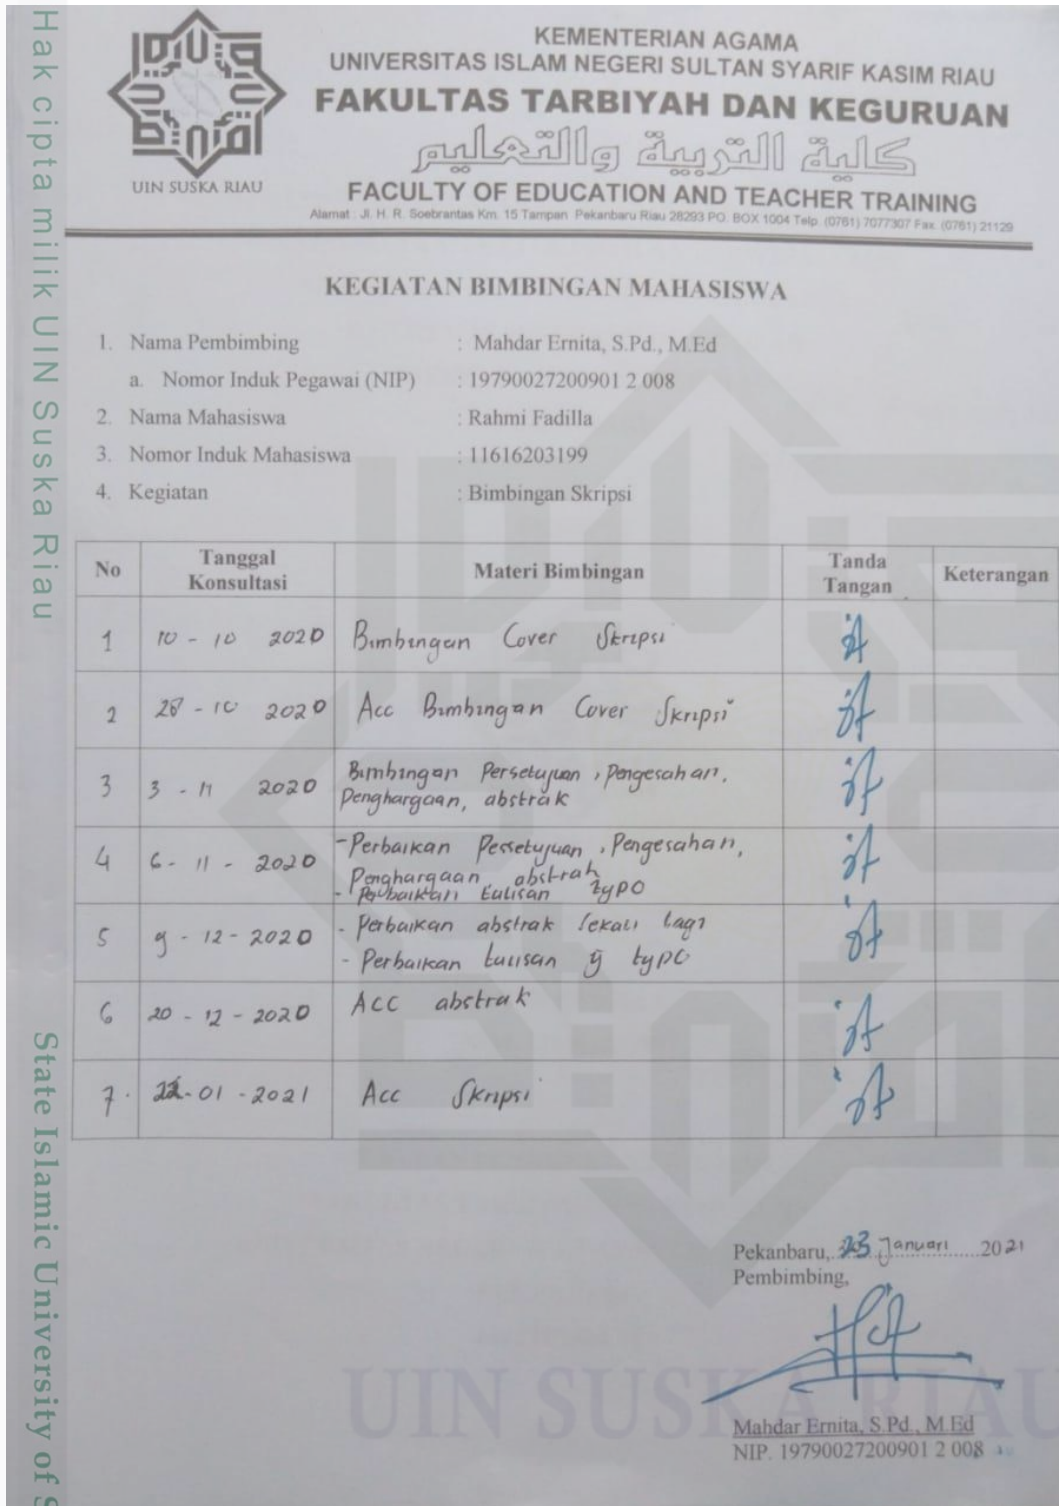 Hak cipta milik UIN Suska Riau
State Islamic University of S
UIN SUSKA RIAU
KEMENTERIAN AGAMA
UNIVERSITAS ISLAM NEGERI SULTAN SYARIF KASIM RIAU
FAKULTAS TARBIYAH DAN KEGURUAN
كلية التربية والتعليم
FACULTY OF EDUCATION AND TEACHER TRAINING
Alamat : Jl. H. R. Soebrantas Km. 15 Tampan Pekanbaru Riau 28293 PO. BOX 1004 Telp. (0761) 7077307 Fax. (0761) 21129
KEGIATAN BIMBINGAN MAHASISWA
1. Nama Pembimbing : Mahdar Ernita, S.Pd., M.Ed
a. Nomor Induk Pegawai (NIP) : 19790027200901 2 008
2. Nama Mahasiswa : Rahmi Fadilla
3. Nomor Induk Mahasiswa : 11616203199
4. Kegiatan : Bimbingan Skripsi
No Tanggal Konsultasi Materi Bimbingan Tanda Tangan Keterangan
1 10 - 10 2020 Bimbingan Cover Skripsi
2 28 - 10 2020 Acc Bimbingan Cover Skripsi
3 3 - 11 2020 Bimbingan Persetujuan, Pengesahan,
Penghargaan, abstrak
4 6 - 11 - 2020 - Perbaikan Persetujuan, Pengesahan,
Penghargaan abstrak
- Perbaikan tulisan typo
5 9 - 12 - 2020 - Perbaikan abstrak sekali lagi
- Perbaikan tulisan yg typo
6 20 - 12 - 2020 ACC abstrak
7. 22-01-2021 Acc Skripsi
Pekanbaru, 23 Januari 2021
Pembimbing,
Mahdar Ernita, S.Pd., M.Ed
NIP. 19790027200901 2 008
UIN SUSKA RIAU